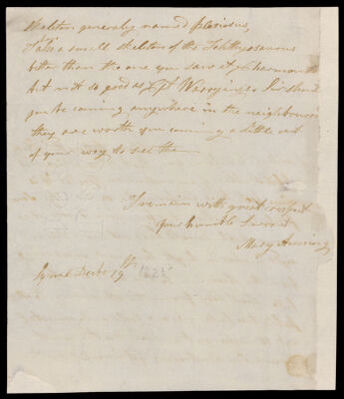 skeleton generaly named plesiosus,
Also a small skeleton of the Ichthyosaurus
better than the one you saw at Charmouth
but not so good as Wesryans Sir should
you be coming anywhere in the neighbour
they are worth you coming a little out
of your way to see them
I remain with great respect
your humble servant
Mary Anning
Lyme 19th 1825